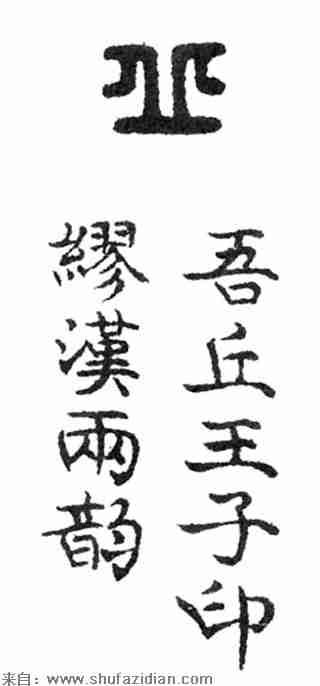 丘
吾丘王子印
繆漢兩韵
来自：www.shufazidian.com